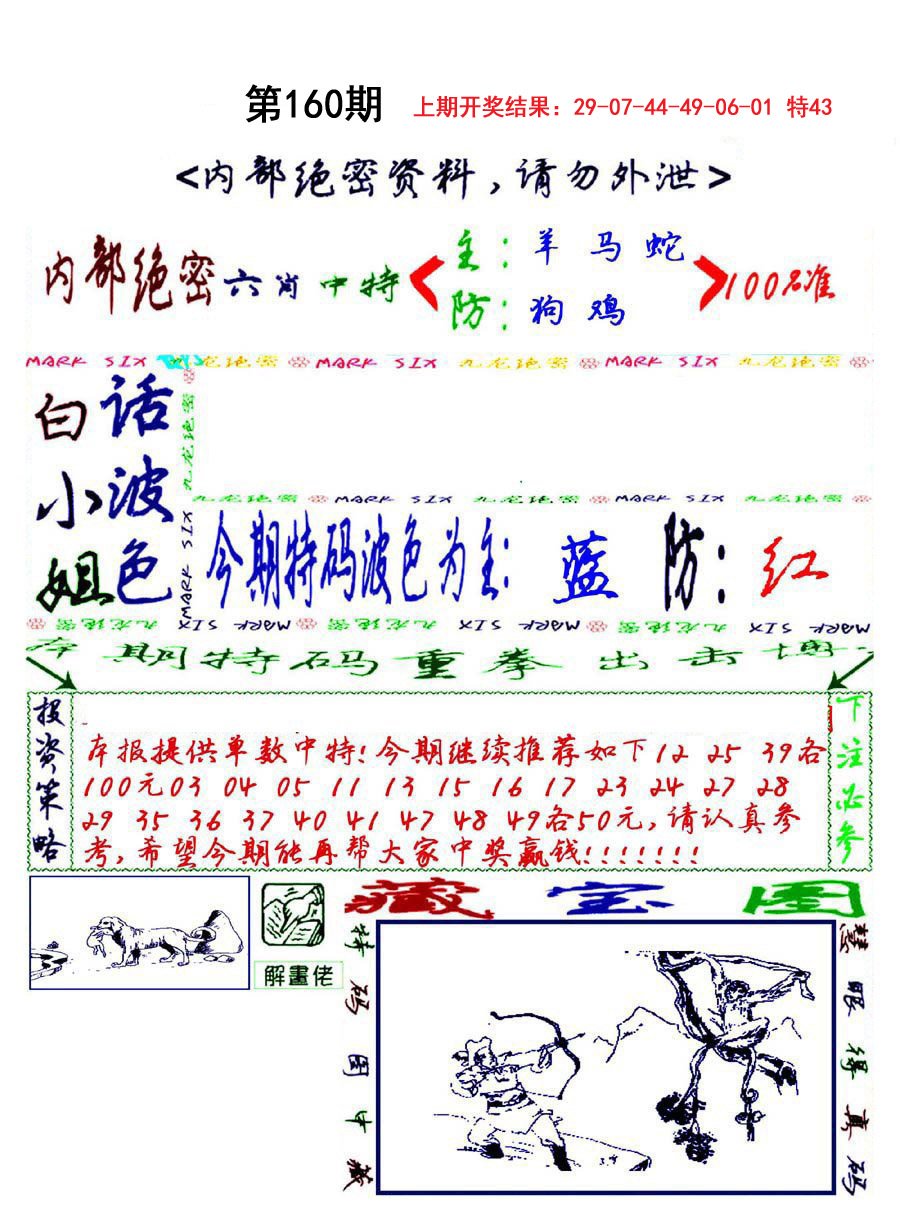 第160期 上期开奖结果：29-07-44-49-06-01 特43
<内部绝密资料，请勿外泄>
内部绝密六肖中特
主：羊 马 蛇
防：狗 鸡
100%准
MARK SIX 九龙绝密 MARK SIX 九龙绝密 MARK SIX 九龙绝密
白
小
姐
话
波
色
九龙绝密 MARK SIX
九龙绝密 MARK SIX 九龙绝密 MARK SIX 九龙绝密
今期特码波色为主：蓝 防：红
九龙绝密 MARK SIX 九龙绝密 MARK SIX 九龙绝密 MARK SIX
本期特码重拳出击博
投资策略
本报提供单数中特！今期继续推荐如下12 25 39各
100元03 04 05 11 13 15 16 17 23 24 27 28
29 35 36 37 40 41 47 48 49各50元，请认真参
考，希望今期能再帮大家中奖赢钱！！！！！！！
下注必参
解畫佬
藏宝图
特码图中藏
慧眼得真码